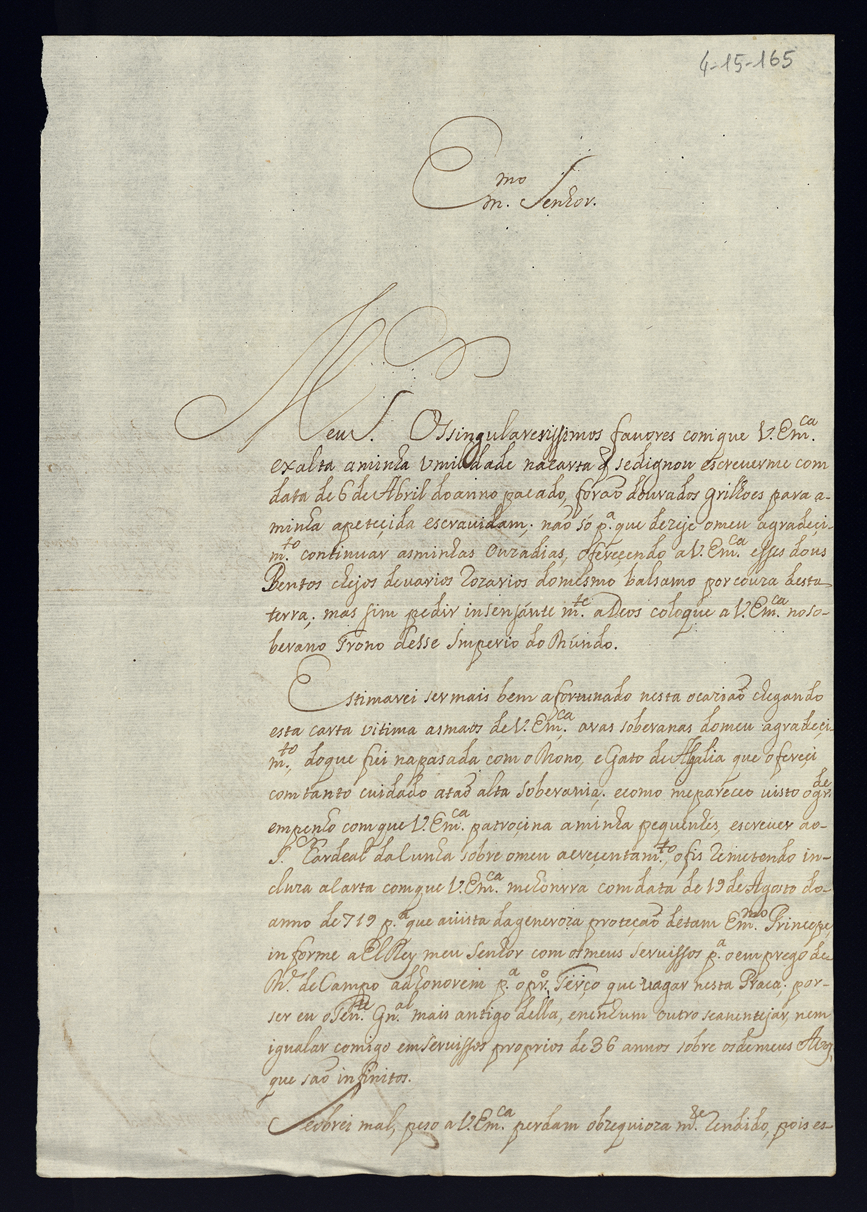 4-15-165
Em.mo Senhor.
Meu S. Os singularessissimos fauores comque V.Em.ca
exalta aminha Vmildade nacarta q̃ sedignou escreuerme com
data de 6 de Abril doanno pacado, forão dourados grilhoes para a-
minha apeteçida escrauidam; não só p.a que dezeje omeu agradeçi-
m.to continuar asminhas ouzadias, ofereçendo a V.Em.ca esses dous
Bentos chejos deuarios Rozarios domesmo balsamo porcouza desta
terra; mas sim pedir insensánte m.te aDeos coloque a V.Em.ca noso-
berano Trono desse Imperio do Mundo.
Estimarei sermais bem afortunado nesta ocazião chegando
esta carta vitima asmaos de V.Em.ca aras soberanas domeu agradeçi-
m.to, doque fui napasada com o Mono, e Gato de Algalia que ofereçi
comtanto cuidado atão alta soberania; ecomo mepareceo uisto ogr.de
empenho comque V.Em.ca patroçina aminha pequenhes, escreuer ao-
S.r Cardeal da Cunha sobre omeu acreçentam.to, ofis Remetendo in-
cluza aCarta comque V.Em.ca mehonrra comdata de 19 de Agosto do-
anno de 719 p.a que auista dageneroza proteção detam Em.mo Principe
informe aElRey meu Senhor com osmeus seruissos p.a oemprego de
M.e de Campo adhonorem p.a opr.o Terço que vagar nesta Praca; por-
ser eu o Ten.te Gn.al mais antigo della, enenhum outro seauentejar, nem
igualar comigo emseruissos proprios de 36 annos sobre osdemeus Auoz,
que são infinitos.
Seobrei mal, peso a V.Em.ca perdam obzequioza m.te Rendido, pois es-